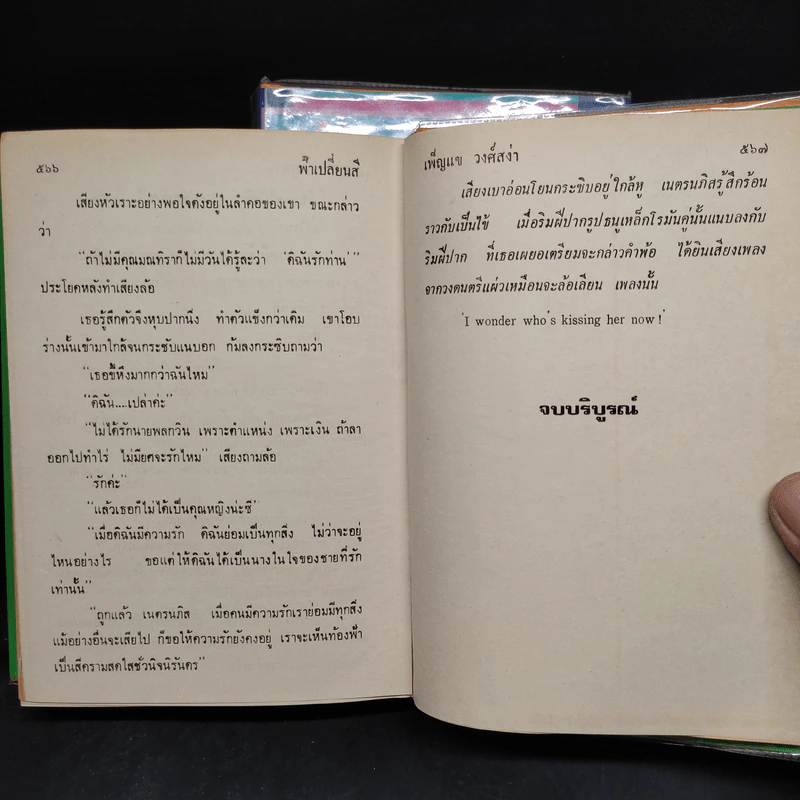 ๕๖๖
ฟ้าเปลี่ยนสี
เสียงหัวเราะอย่างพอใจดังอยู่ในลำคอของเขา ขณะกล่าว
ว่า
“ถ้าไม่มีคุณมณทิราก็ไม่มีวันได้รู้ละว่า ‘ดิฉันรักท่าน’”
ประโยคหลังทำเสียงล้อ
เธอรู้สึกตัวจึงหุบปากนิ่ง ทำตัวแข็งกว่าเดิม เขาโอบ
ร่างนั้นเข้ามาใกล้จนกระชับแนบอก ก้มลงกระซิบถามว่า
“เธอขี้หึงมากกว่าฉันไหม”
“ดิฉัน....เปล่าค่ะ”
“ไม่ได้รักนายพลกวิน เพราะตำแหน่ง เพราะเงิน ถ้าลา
ออกไปทำไร่ ไม่มียศจะรักไหม” เสียงถามล้อ
“รักค่ะ”
“แล้วเธอก็ไม่ได้เป็นคุณหญิงน่ะซี”
“เมื่อดิฉันมีความรัก ดิฉันย่อมเป็นทุกสิ่ง ไม่ว่าจะอยู่
ไหนอย่างไร ขอแต่ให้ดิฉันได้เป็นนางในใจของชายที่รัก
เท่านั้น”
“ถูกแล้ว เนตรนภิส เมื่อคนมีความรักเราย่อมมีทุกสิ่ง
แม้อย่างอื่นจะเสียไป ก็ขอให้ความรักยังคงอยู่ เราจะเห็นท้องฟ้า
เป็นสีครามสดใสชั่วนิจนิรันดร”
เพ็ญแข วงศ์สง่า
๕๖๗
เสียงเบาอ่อนโยนกระซิบอยู่ใกล้หู เนตรนภิสรู้สึกร้อน
ราวกับเป็นไข้ เมื่อริมฝีปากรูปธนูเหล็กโรมันคู่นั้นแนบลงกับ
ริมฝีปาก ที่เธอเผยอเตรียมจะกล่าวคำพ้อ ได้ยินเสียงเพลง
จากวงดนตรีแผ่วเหมือนจะล้อเลียน เพลงนั้น
‘I wonder who's kissing her now!’
จบบริบูรณ์